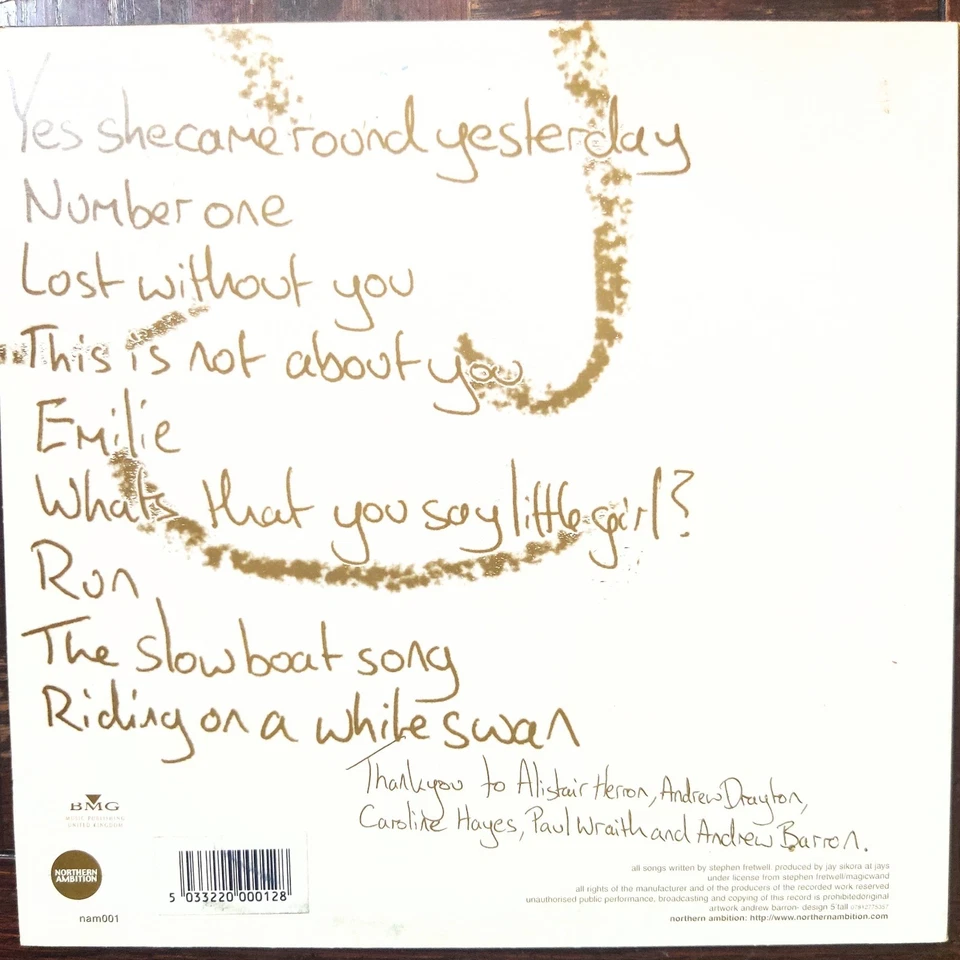 Yes she came round yesterday
Number one
Lost without you
This is not about you
Emilie
Whats that you say little girl?
Run
The slow boat song
Riding on a white swan
Thankyou to Alistair Heron, Andrew Drayton,
Caroline Hayes, Paul Wraith and Andrew Barron.
BMG
MUSIC PUBLISHING
UNITED KINGDOM
NORTHERN
AMBITION
nam001
5 033220 000128
all songs written by stephen fretwell produced by jay sikora at jays
under license from stephen fretwell/magicwand
all rights of the manufacturer and of the producers of the recorded work reserved
unauthorised public performance, broadcasting and copying of this record is prohibitedoriginal
artwork andrew barron- design 5'tall
northern ambition: http://www.northernambition.com